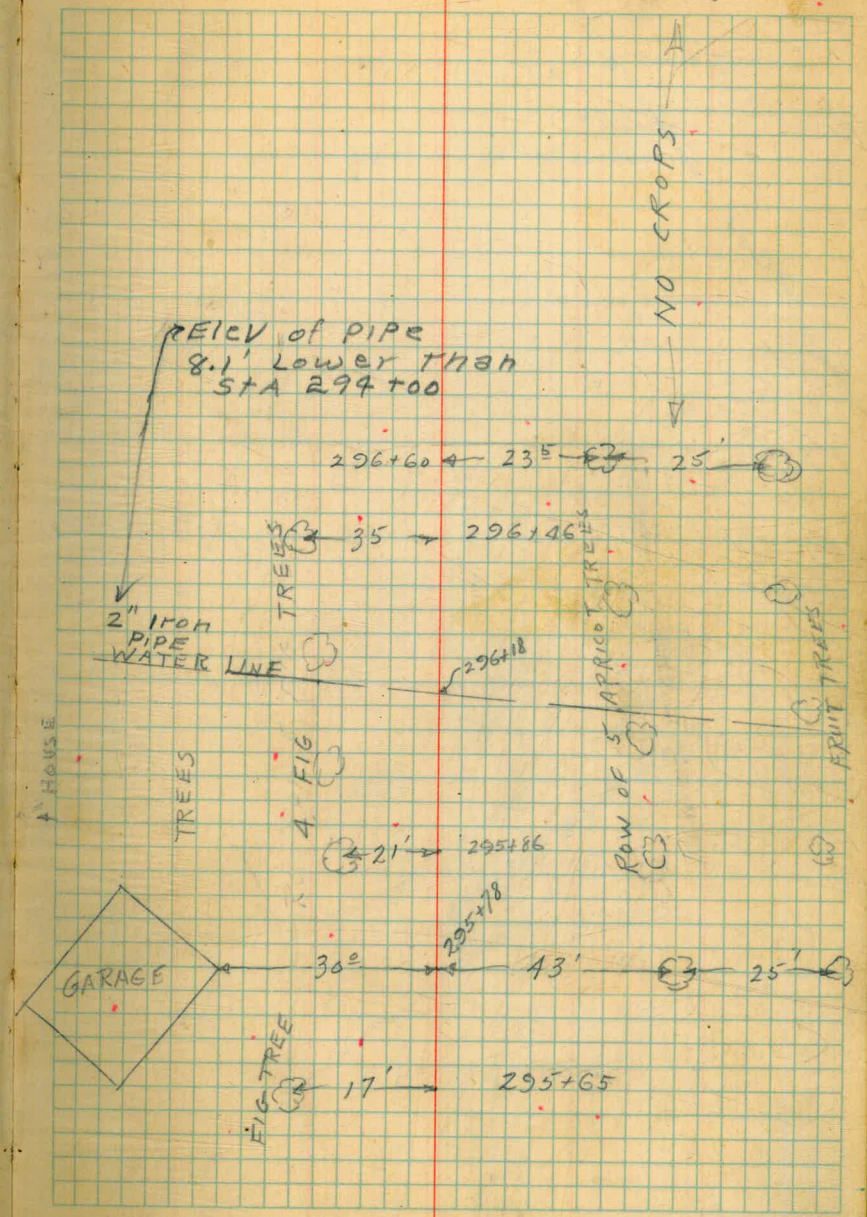 NO CROPS
Elev of PIPE
8.1' Lower Than
StA 294+00
296+60
23 5
25'
TREES
35
296+46
2" Iron
PIPE
WATER LINE
296+18
ROW OF 5 APRICOT TREES
FRUIT TREES
HOUSE
TREES
4 FIG
21'
295+86
295+78
GARAGE
30 0
43'
25'
FIG TREE
17'
295+65